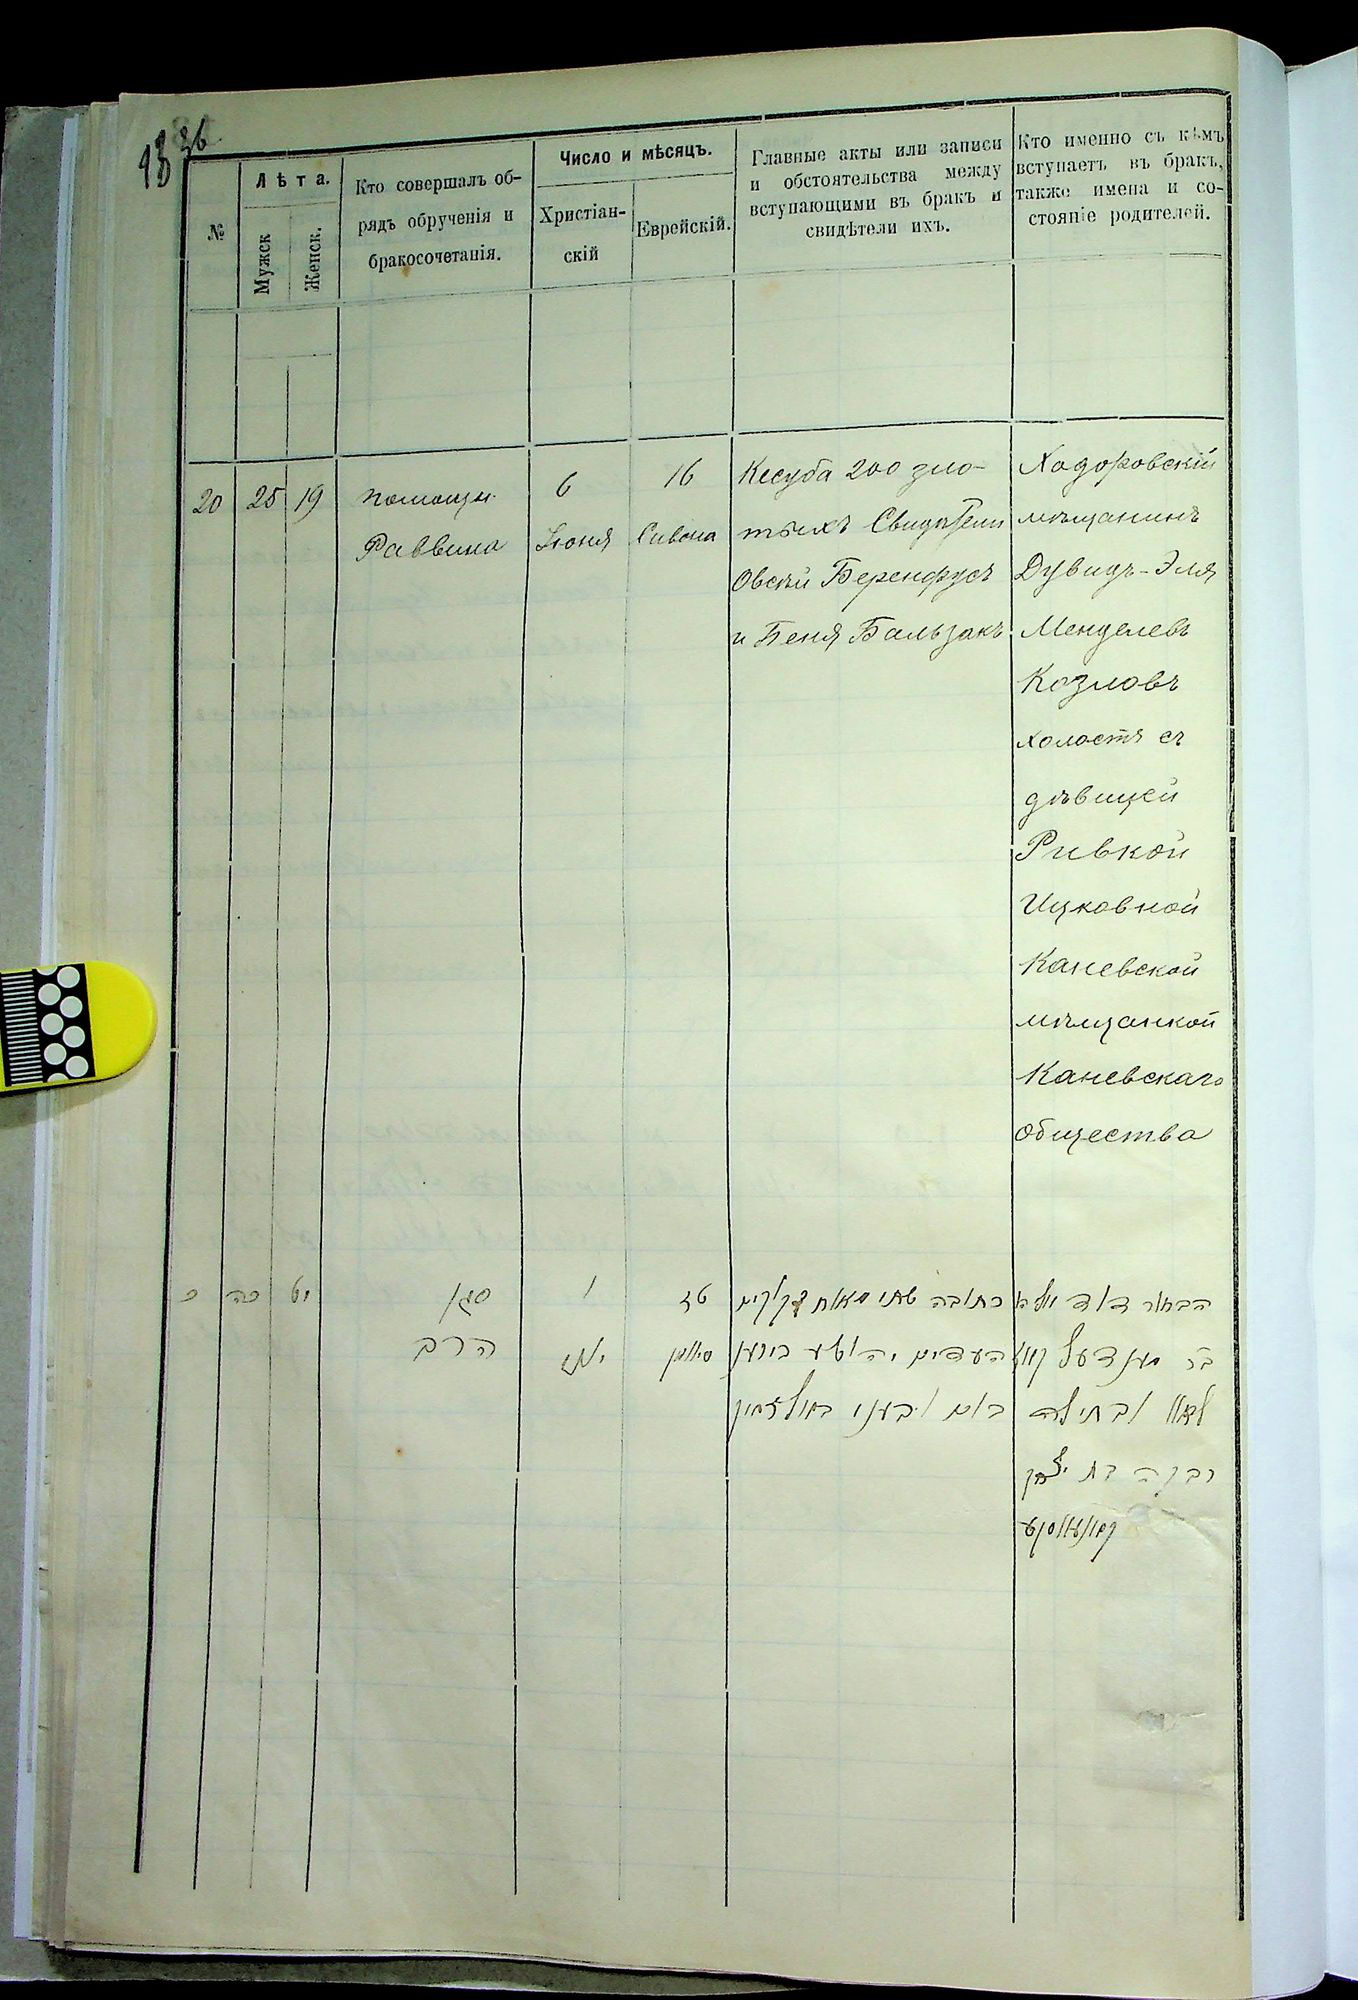 36
№
Лѣта.
Мужск
Женск.
Кто совершалъ об-
рядъ обрученія и
бракосочетанія.
Число и мѣсяцъ.
Христіан-
скій
Еврейскій.
Главные акты или записи
и обстоятельства между
вступающими въ бракъ и
свидѣтели ихъ.
Кто именно съ кѣмъ
вступаетъ въ бракъ,
также имена и со-
стояніе родителей.
20
25
19
помощн.
Раввина
6
Іюня
16
Сивона
Кесуба 200 зло-
тыхъ Свидѣтели
Овсѣй Беренфусъ
и Беня Бальзакъ
Ходоровскій
мѣщанинъ
Дувидъ-Эля
Менделевъ
Козловъ
холостъ съ
дѣвицей
Ривкой
Ицковной
Каневской
мѣщанкой
Каневскаго
общества
כ
כה
יט
סגן
הרב
ו
יוני
טז
סיון
כתובה שתי מאות זקוקים
העדים יהושע בירען
הבחור דוד אליה
בר מענדעל
רבקה בת יצחק